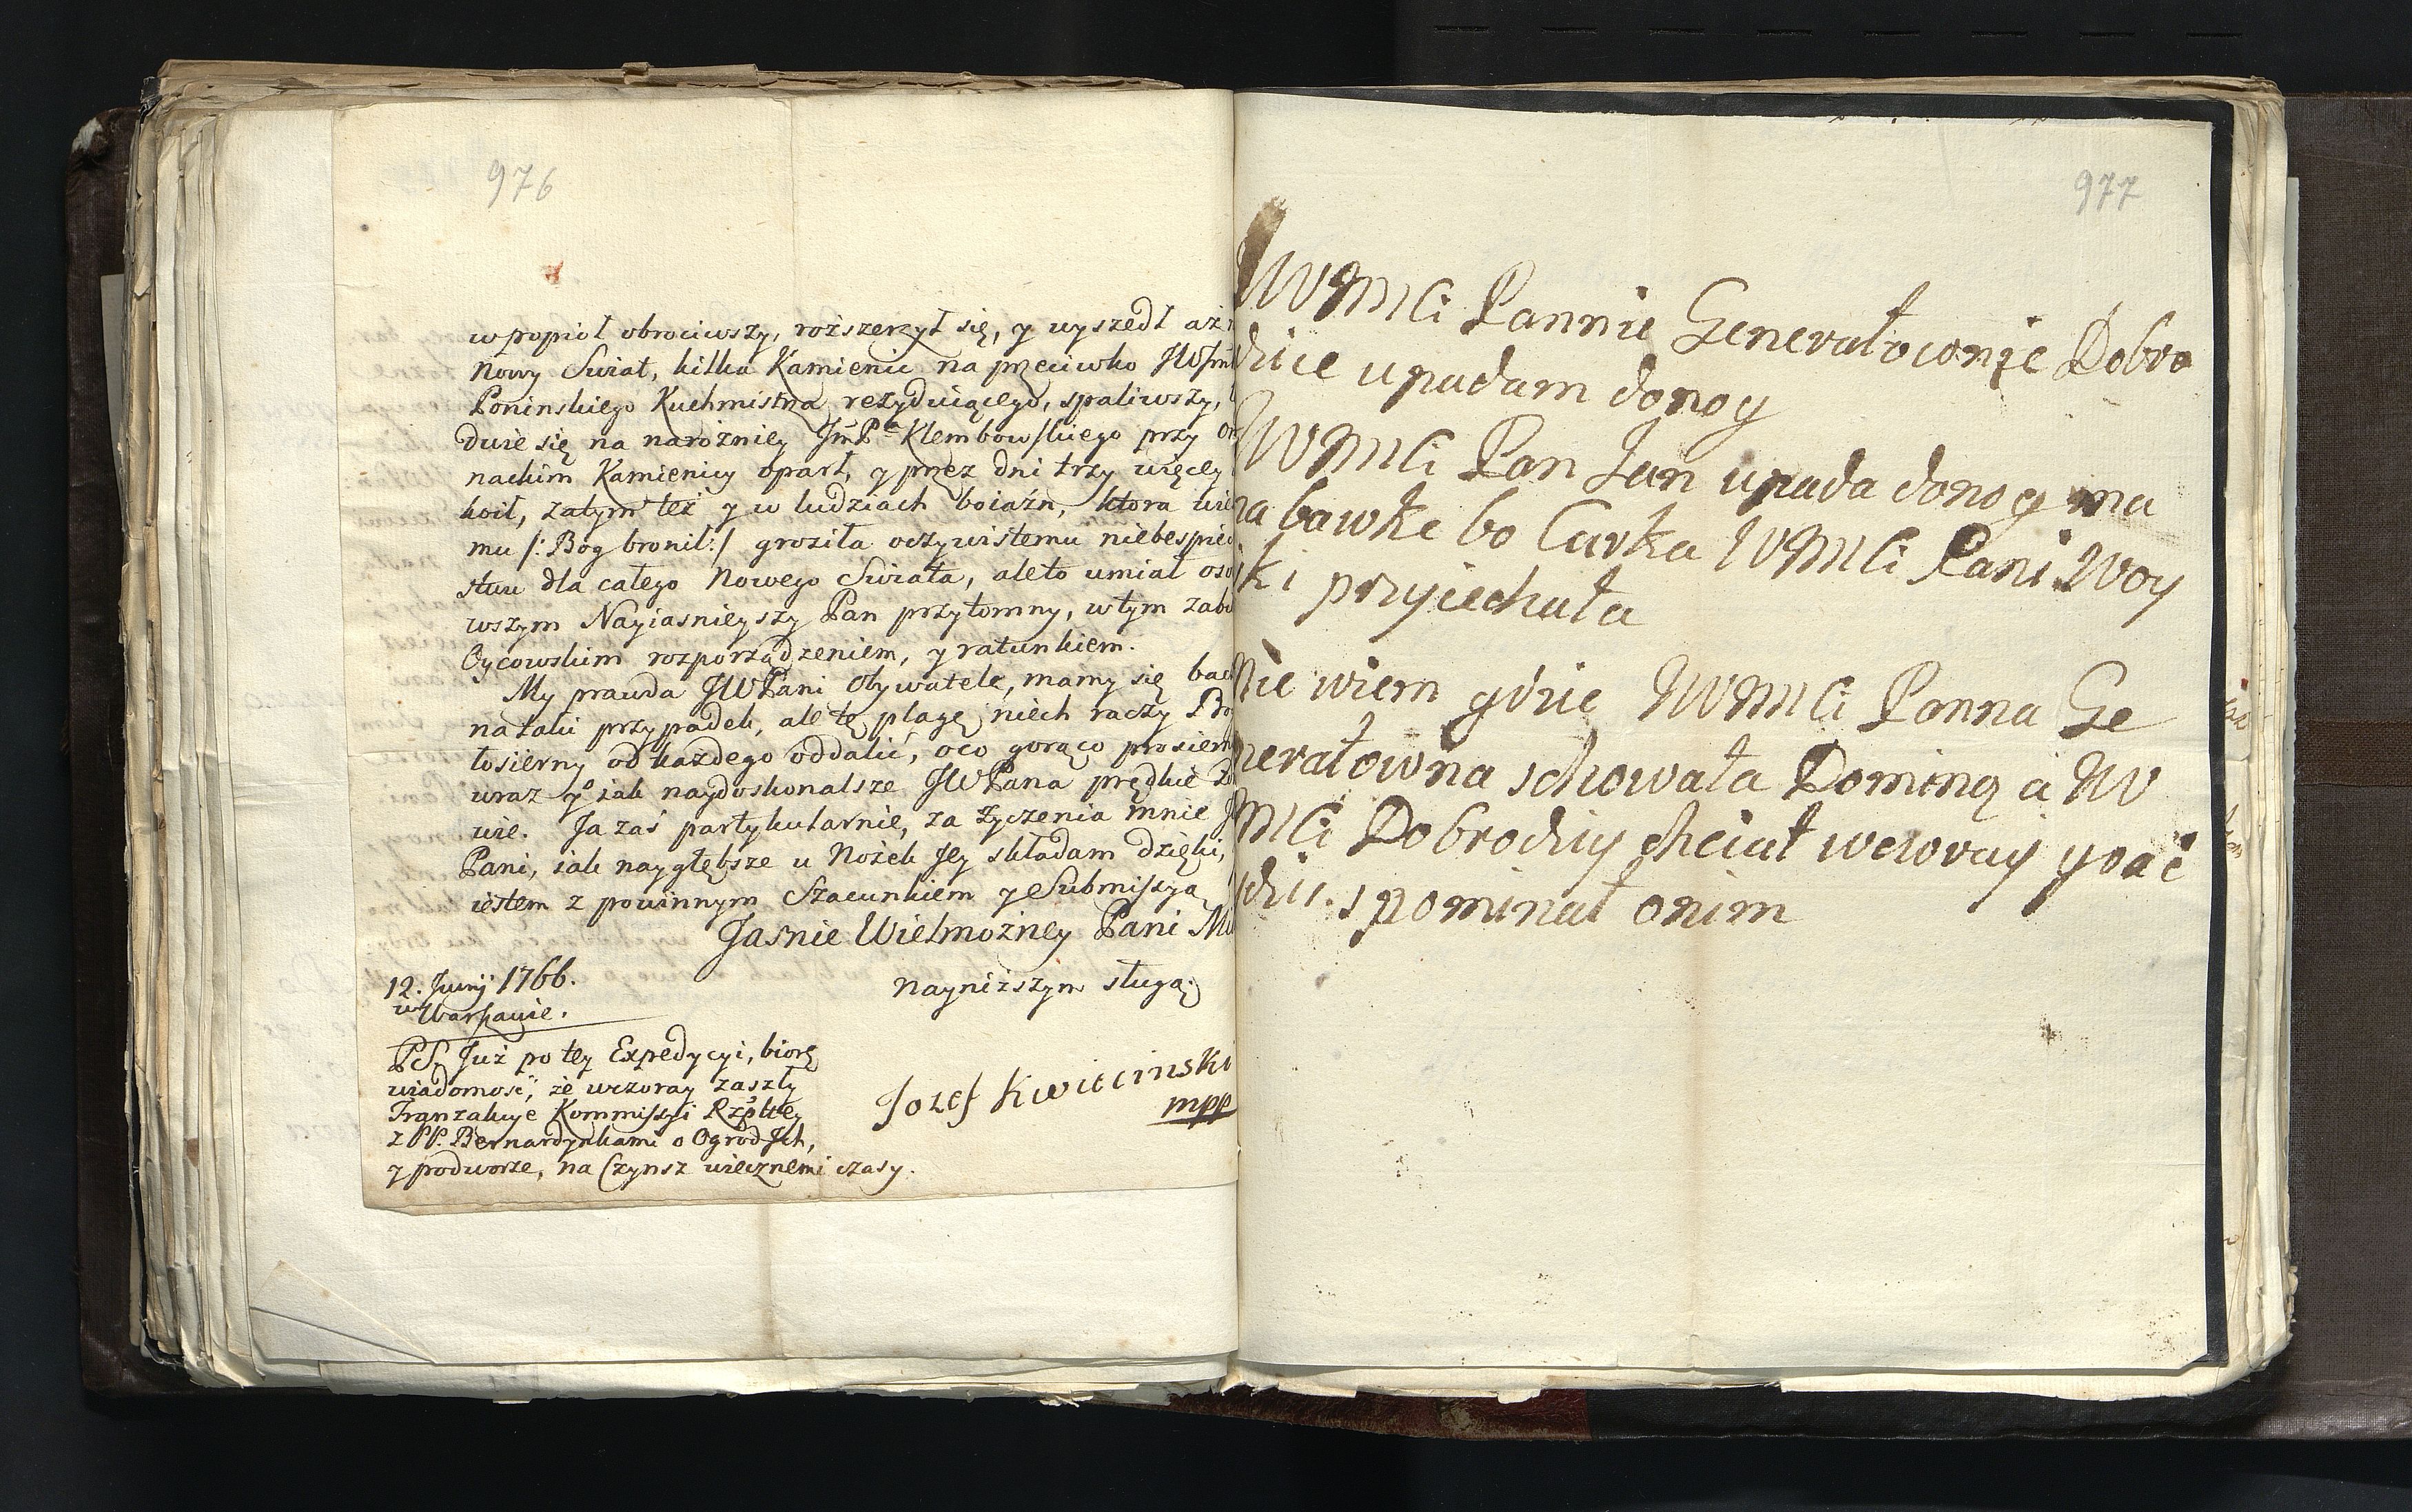 976
w popioł obrociwszy, rozszerzył się, y wyszedł aż
Nowy Swiat, kilka Kamienic na przeciwko
Poninskiego Kuchmistrza rezyduiącego, spaliwszy,
dwie się na narożniey Klembowskiego przy
nackim Kamienicy oparł, y przez dni trzy więcey
koił, zatym też y w ludziach boiaźń, ktora
mu /: Bog bronił :/ groziła oczywistemu niebespie
stwu dla całego Nowego Swiata, ale to umiał
wszym Nayiasnieyszy Pan przytomny, w tym
Oycowskim rozporządzeniem, y ratunkiem.
My prawda JWPani Obywatele, mamy się
na taki przypadek, ale tę plagę niech raczy
łosierny od każdego oddalić, o co gorąco prosiem
wraz y o iak naydoskonalsze JWPana prędkie
wie. Ja zaś partykularnie, za życzenia mnie
Pani, iak naygłębsze u Nożek Jey składam dzięki,
iestem z powinnym Szacunkiem y Submissyą
Jasnie Wielmożney Pani
nayniższym sługą
12. Junij 1766.
w Warszawie.
Jozef Kwiecinski
mpp
PS. Już po tey Expedycyi, biorę
wiadomość, że wczoray zaszły
Tranzakcye Kommissyi Rzpltey
z PP. Bernardynkami o Ogrod Ich,
y podworze, na Czynsz wiecznemi czasy.
977
WMMCi Pannie Generałownie Dobro
dzice upadam donog
WMMCi Pan Jan upada donog ma
za bawke bo Curka WMMCi Pani Woy
ski przyiechała
Nie wiem gdzie WMMCi Panna Ge
nerałowna schowała Doming a WM
MCi Dobrodziy chciał wcwray
spominał onim